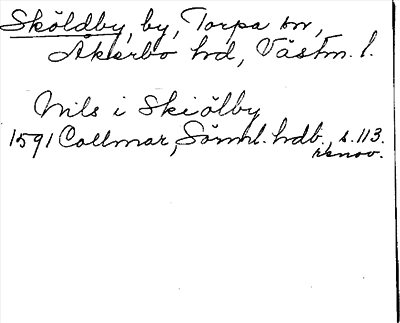 Sköldby, by, Torpa sn,
Åkerbo hd, Västm. l.
Nils i Skiölby
1591 Collmar, Sömhl. hdb., s. 113.
renov.